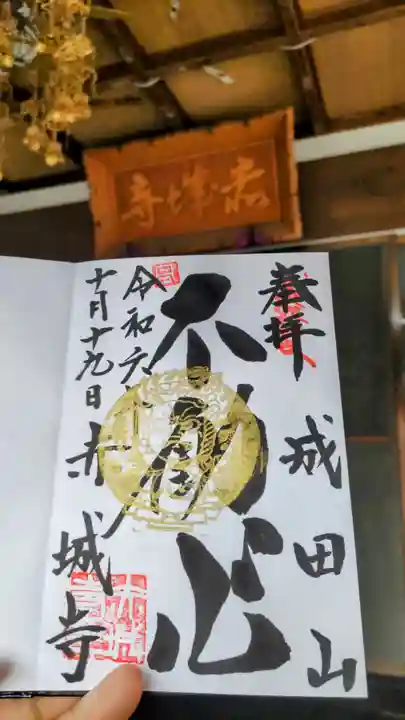 赤城寺
奉拝
成田山
不動心
令和六年
十月十九日
赤城寺